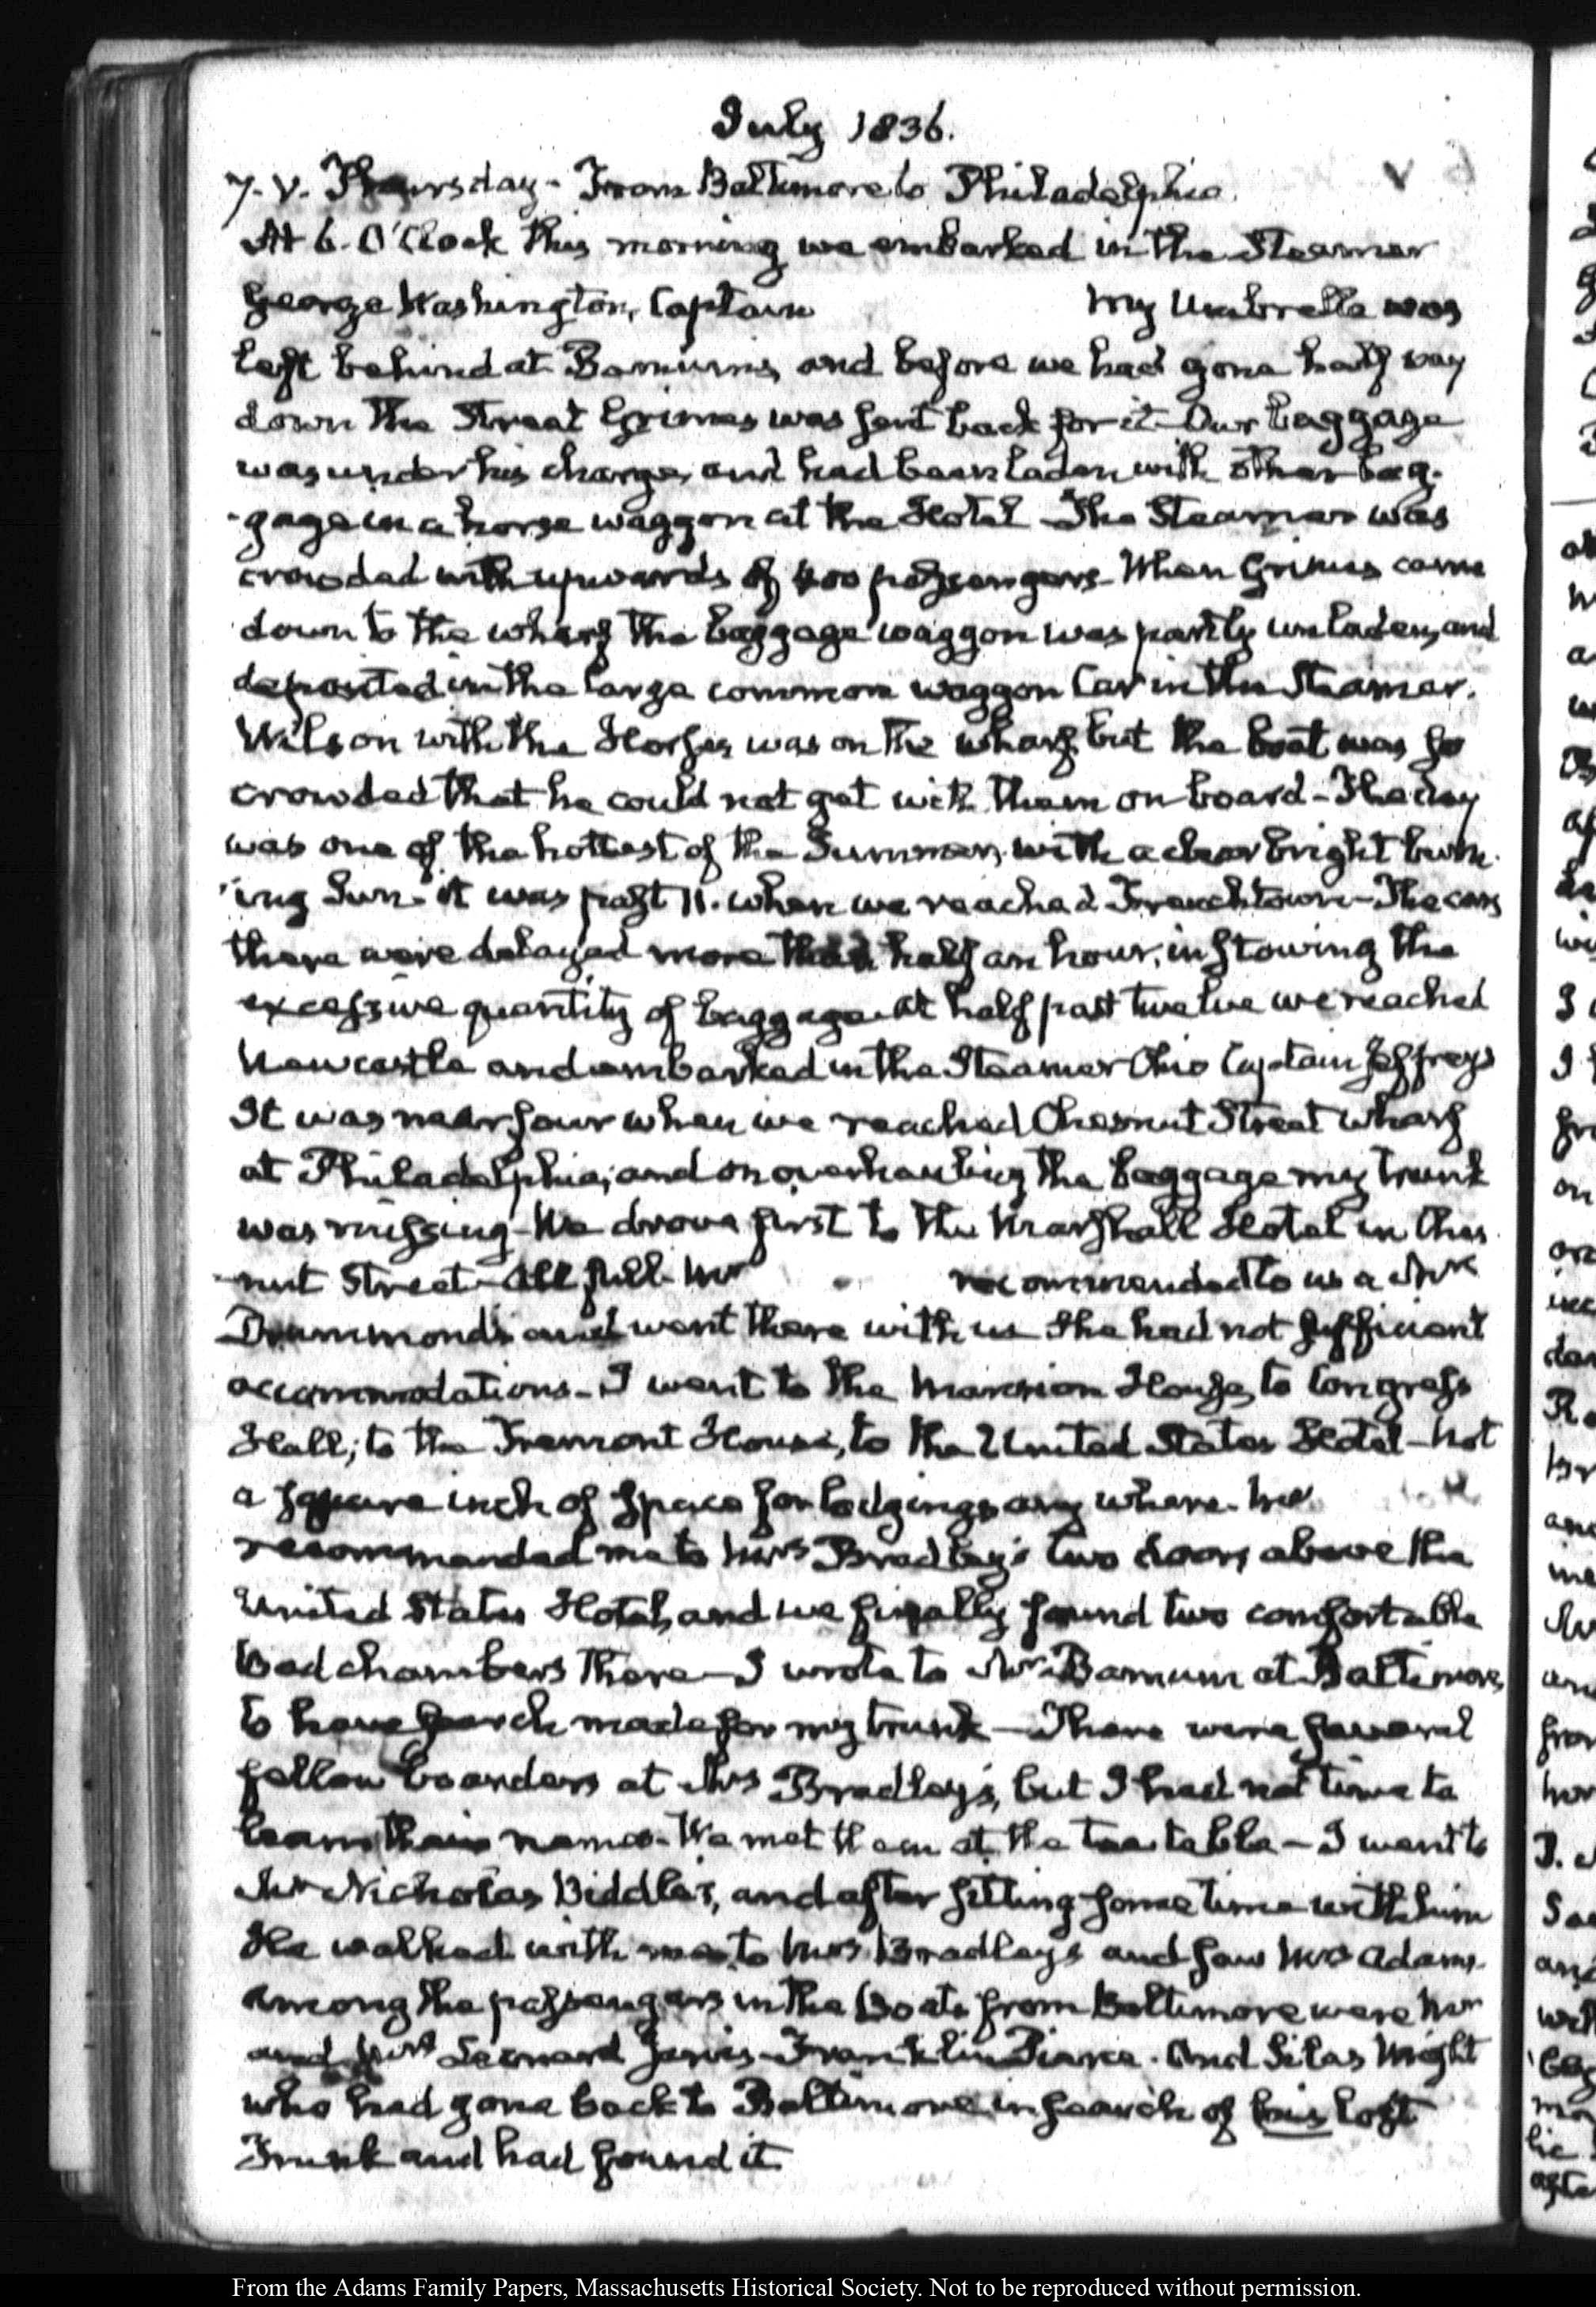 July 1836.
7. V. Thursday - From Baltimore to Philadelphia
At 6. O'Clock this morning we embarked in the Steamer
George Washington, Captain My Umbrella was
left behind at Barnum's, and before we had gone half way
down the Street Grimes was sent back for it - Our baggage
was under his charge, and had been laden with other bag-
-gage in a horse waggon at the Hotel - The Steamer was
crowded with upwards of 400 passengers - When Grimes came
down to the wharf the baggage waggon was partly unladen, and
deposited in the large common waggon Car in the Steamer.
Wilson with the Horses was on the wharf, but the boat was so
crowded that he could not get with them on board - The day
was one of the hottest of the Summer, with a clear bright burn-
-ing Sun - it was past 11. when we reached Frenchtown - The cars
there were delayed more than half an hour, in stowing the
excessive quantity of baggage - At half past twelve we reached
Newcastle and embarked in the Steamer Ohio Captain Jeffreys
It was near four when we reached Chesnut Street wharf
at Philadelphia; and on overhauling the baggage my trunk
was missing - We drove first to the Marshall Hotel in Ches-
-nut Street - All full - Mr recommended to us a Mrs
Drummond's and went there with us She had not sufficient
accommodations - I went to the Mansion House, to Congress
Hall; to the Tremont House, to the United States Hotel - Not
a square inch of space for lodgings any where - Mr
recommended me to Mrs Bradley's two doors above the
United States Hotel, and we finally found two comfortable
Bed chambers there - I wrote to Mr Barnum at Baltimore,
to have search made for my trunk - There were several
fellow boarders at Mrs Bradley's, but I had not time to
learn their names - We met them at the tea table - I went to
Mr Nicholas Biddle's, and after sitting some time with him
He walked with me to Mrs Bradleys and saw Mrs Adams -
Among the passengers in the Boats from Baltimore were Mr
and Mrs Leonard Jarvis - Franklin Pierce - And Silas Wright
who had gone back to Baltimore in search of his lost
Trunk and had found it.
From the Adams Family Papers, Massachusetts Historical Society. Not to be reproduced without permission.